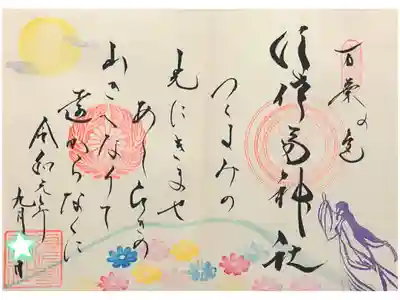 万葉の色
神社
つくよみの
光にきませ
あしひきの
山きへなりて
遠からなくに
令和元年
九月 日